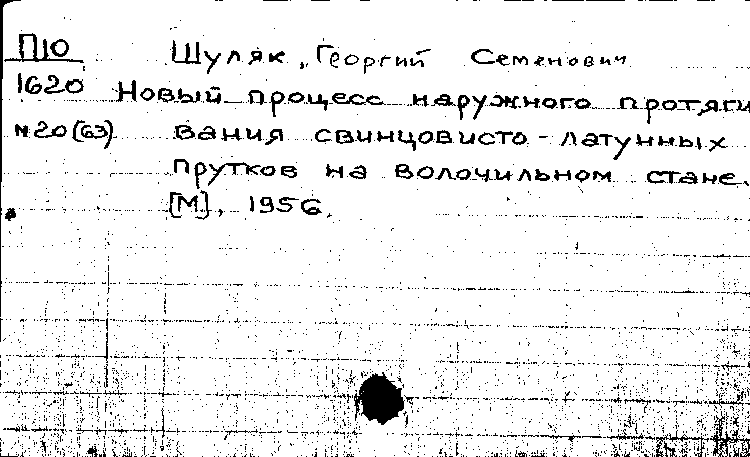 П10 Шуляк, Георгий Семенович
1620 Новый процесс наружного протяги
№20(63) вания свинцовисто-латунных
прутков на волочильном стане.
[М], 1956.